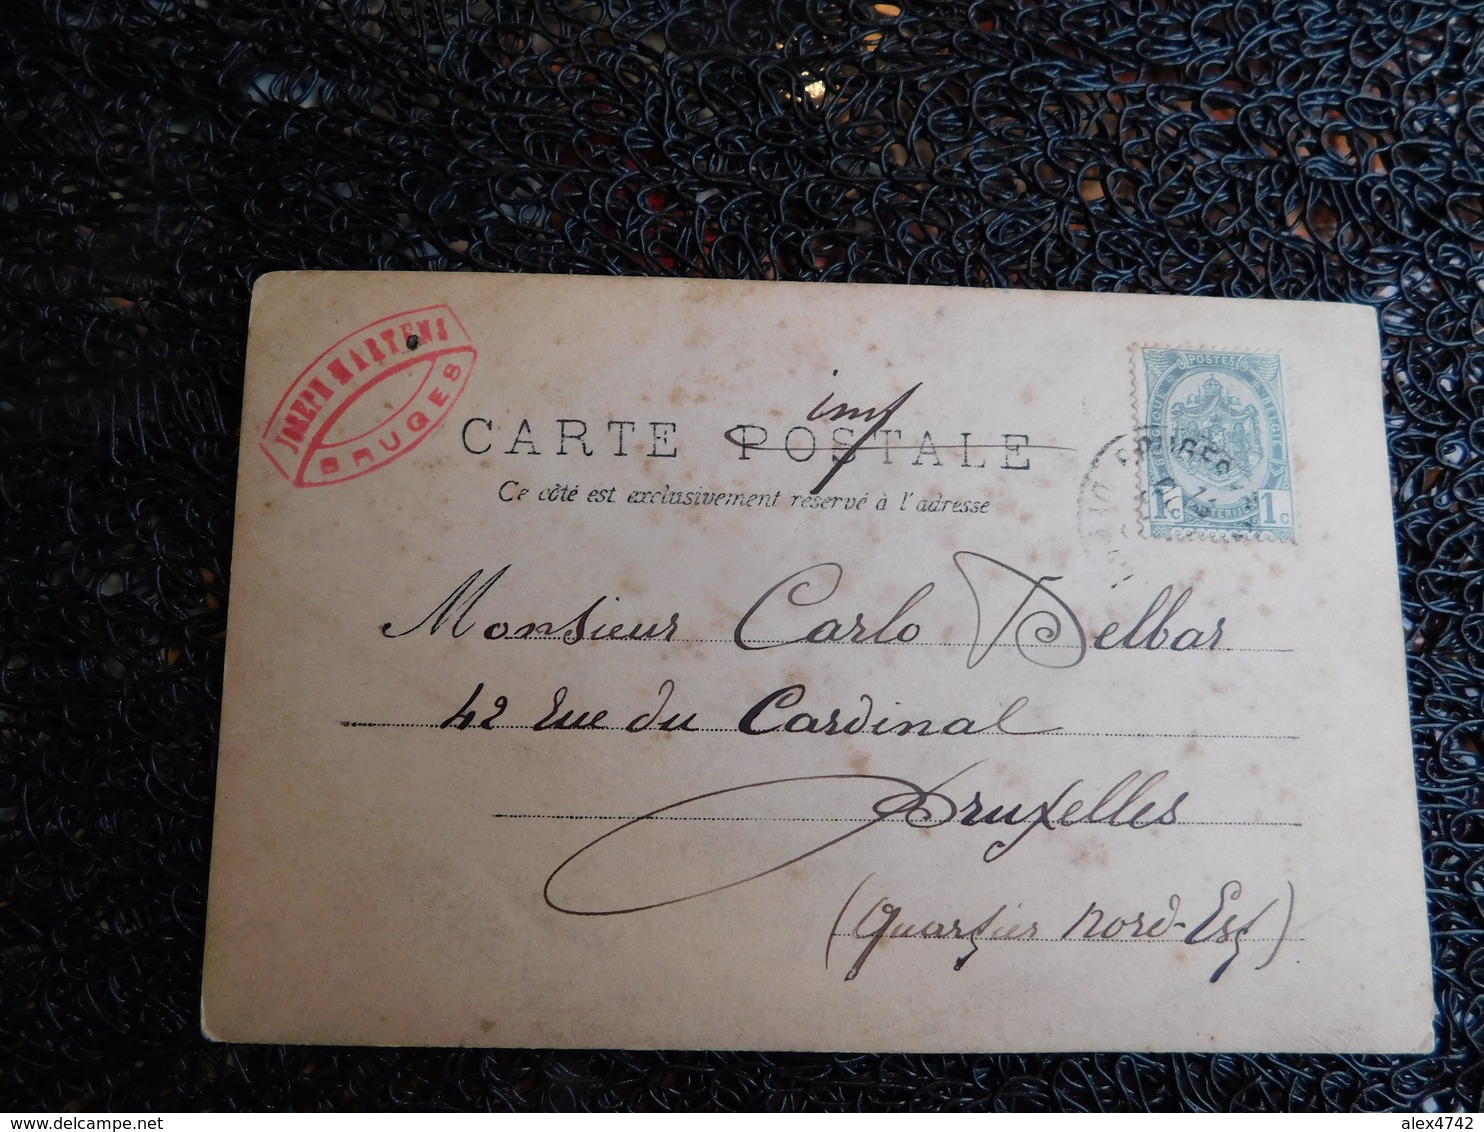 JOSEPH MARTENS
BRUGES
imp
CARTE POSTALE
Ce côté est exclusivement réservé à l'adresse
POSTES
BELGIQUE
BELGIE
1c 1c
BRUGES
Monsieur Carlo Delbar
42 rue du Cardinal
Bruxelles
(Quartier Nord-Est)
alex4742